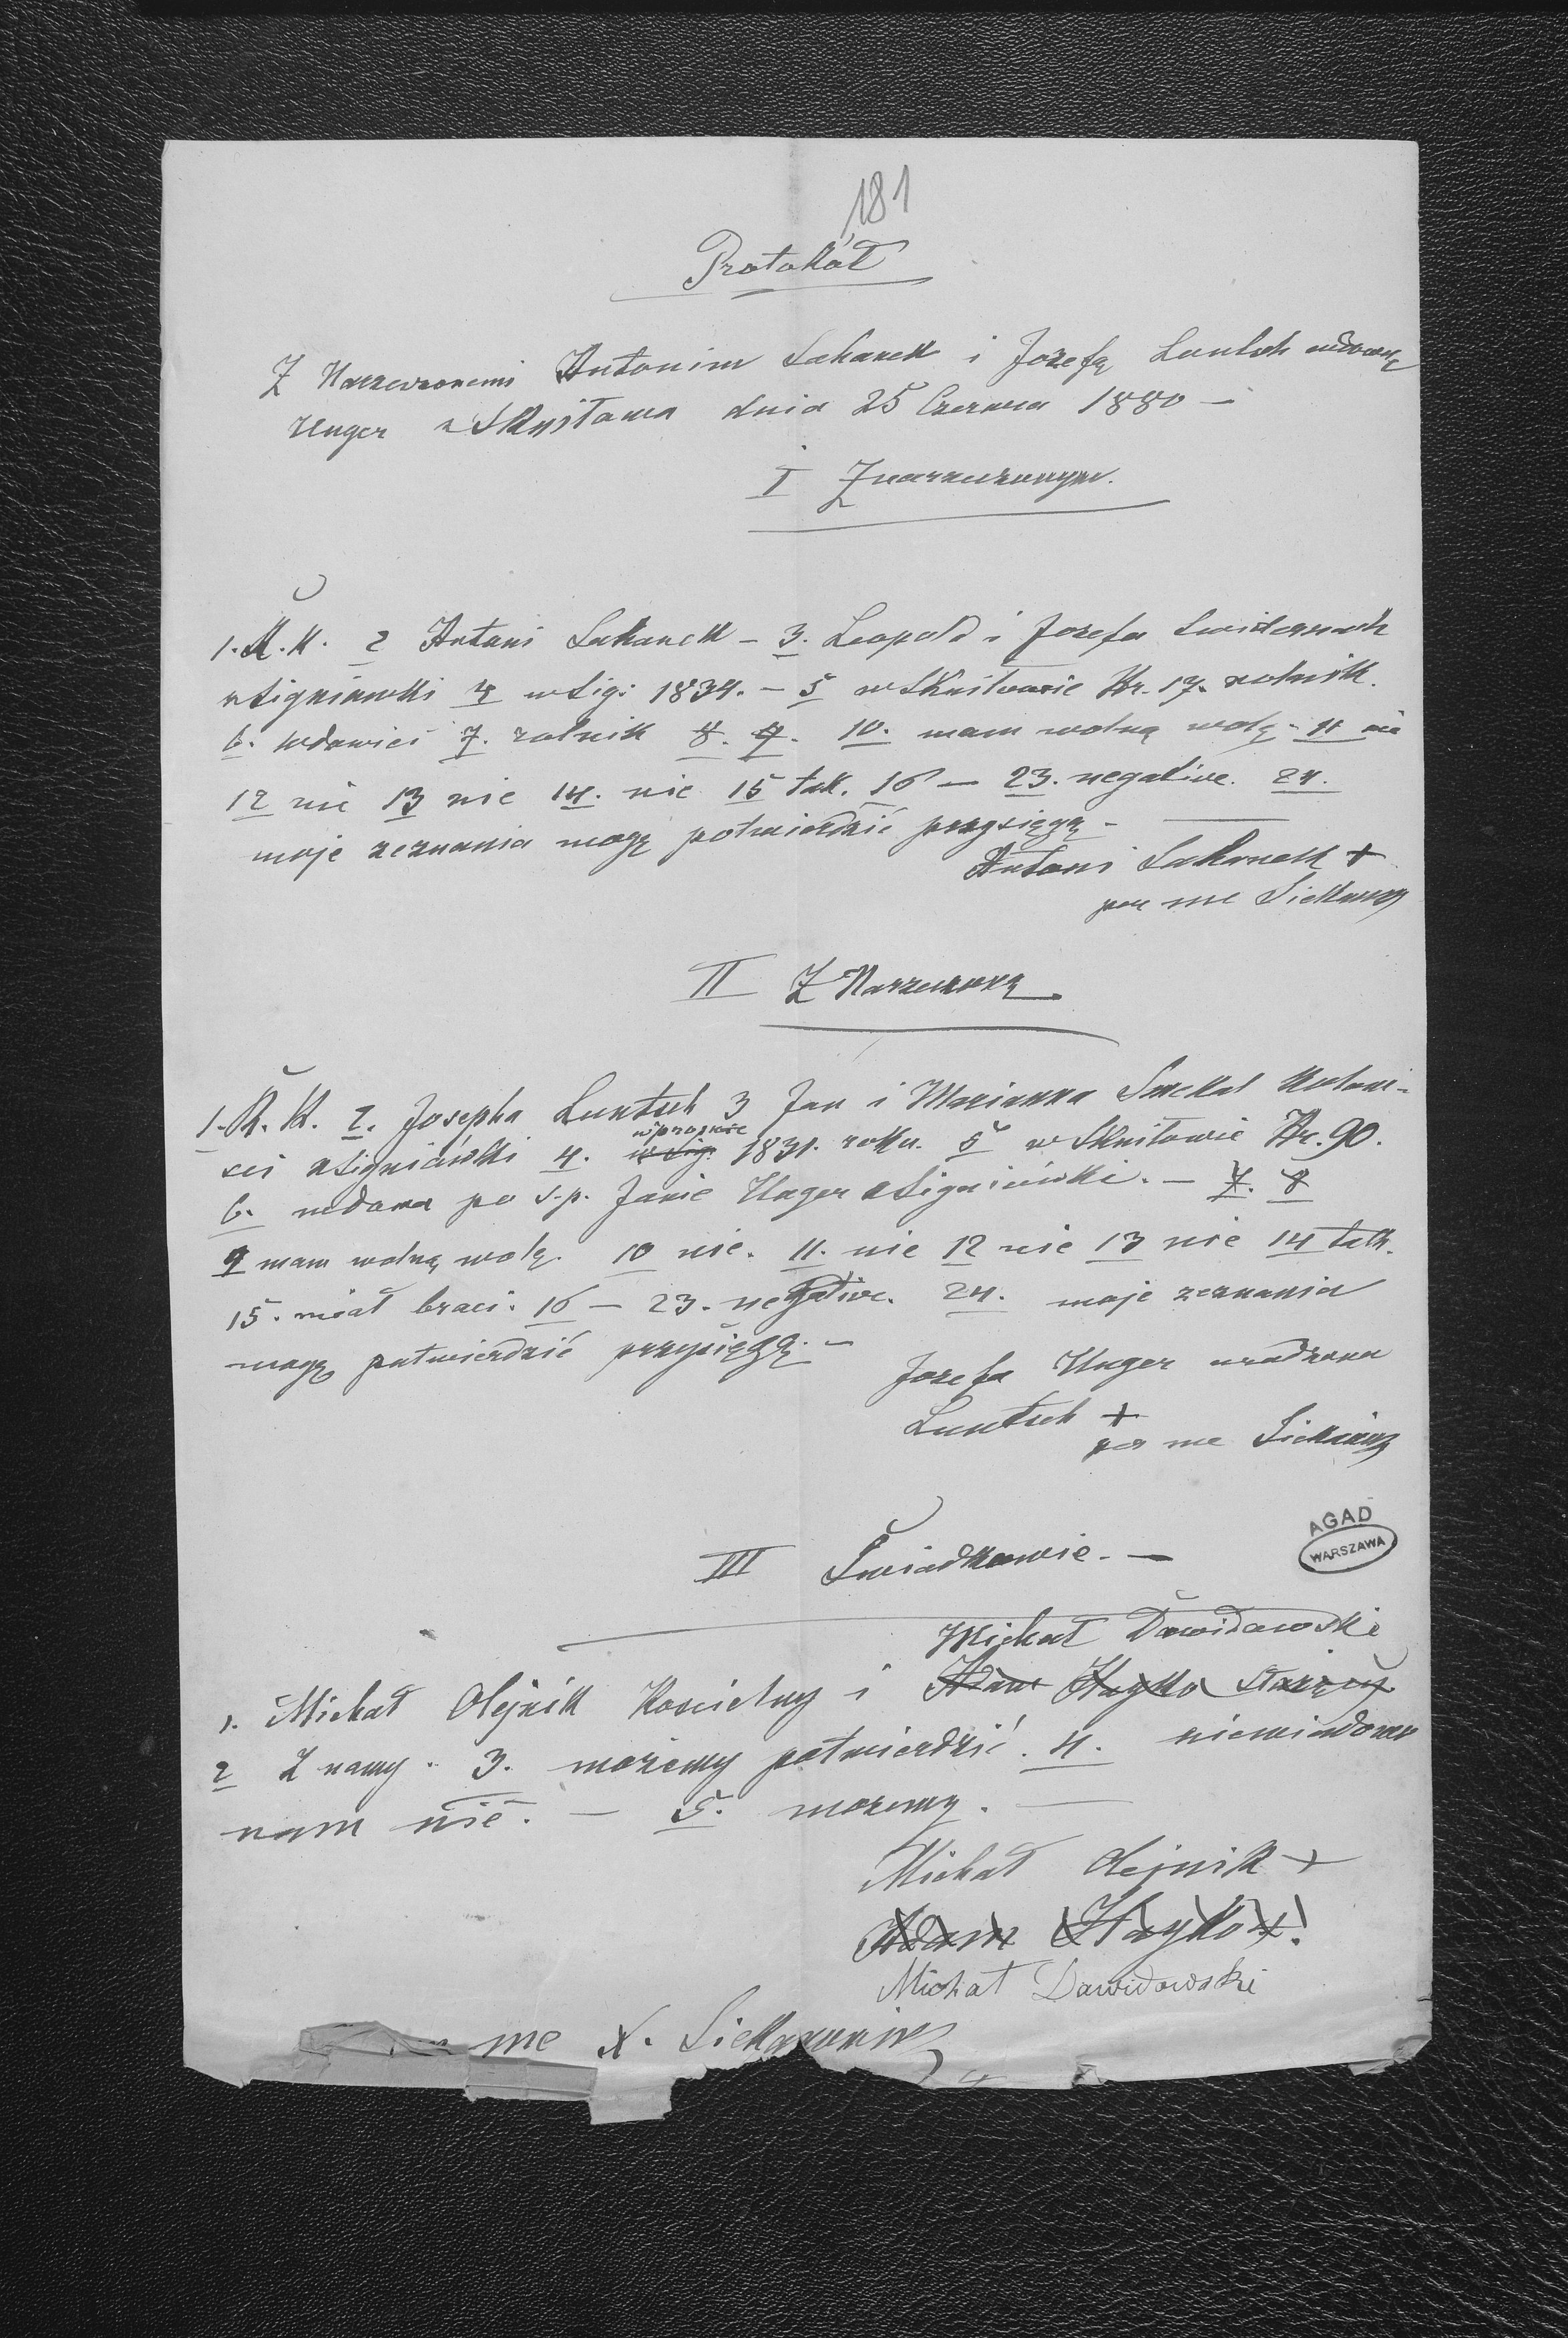 181
Protokół
Z Narzeczonemi Antonim Sakanek i Jozefą Luntsch wdową
Unger z Skniłowa dnia 25 Czerwca 1880 –
I Z narzeczonym.
1. R. K. 2 Antoni Sakanek – 3. Leopold i Jozefa
z Signiówki 4 w Sig: 1834. – 5 w Skniłowie Nr. 17. rolnik.
6. wdowiec 7. rolnik 8. 9. 10. mam wolną wolę – 11 nie
12 nie 13 nie 14. nie 15 tak. 16 – 23. negative. 24.
moje zeznania mogę potwierdzić przysięgą –
Antoni Sakanek +
per me
II Z Narzeczoną
1. R. K. 2. Josepha Luntsch 3 Jan i Marianna Smekal
z Signiówki 4. w Sig. 1831. roku. 5 w Skniłowie Nr. 90.
6. wdowa po s.p. Janie Unger z Signiówki. – 7. 8
9 mam wolną wolę. 10 nie. 11. nie 12 nie 13 nie 14 tak.
15. miał braci. 16 – 23. negative. 24. moje zeznania
mogę potwierdzić przysięgą. –
Jozefa Unger urodzona
Luntsch +
per me
III Świadkowie. –
AGAD
WARSZAWA
Michał Dawidowski
1. Michał Olejnik Kościelny i Adam Hayko starszy
2 Znamy. 3. możemy potwierdzić. 4. niewiadomo
nam nic. – 5. możemy. –
Michał Olejnik +
Adam Hayko +!
Michał Dawidowski
me X.